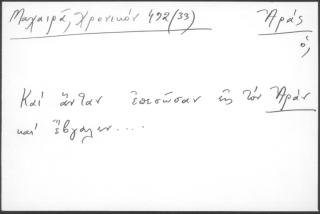 Μαχαιρᾶ, Χρονικόν 492 (33) Ἀρᾶς
ὁ,
Καὶ ὅνταν ἐπεσῶσαν εἰς τὸν Ἀρᾶν
καὶ ἔβγαλεν....